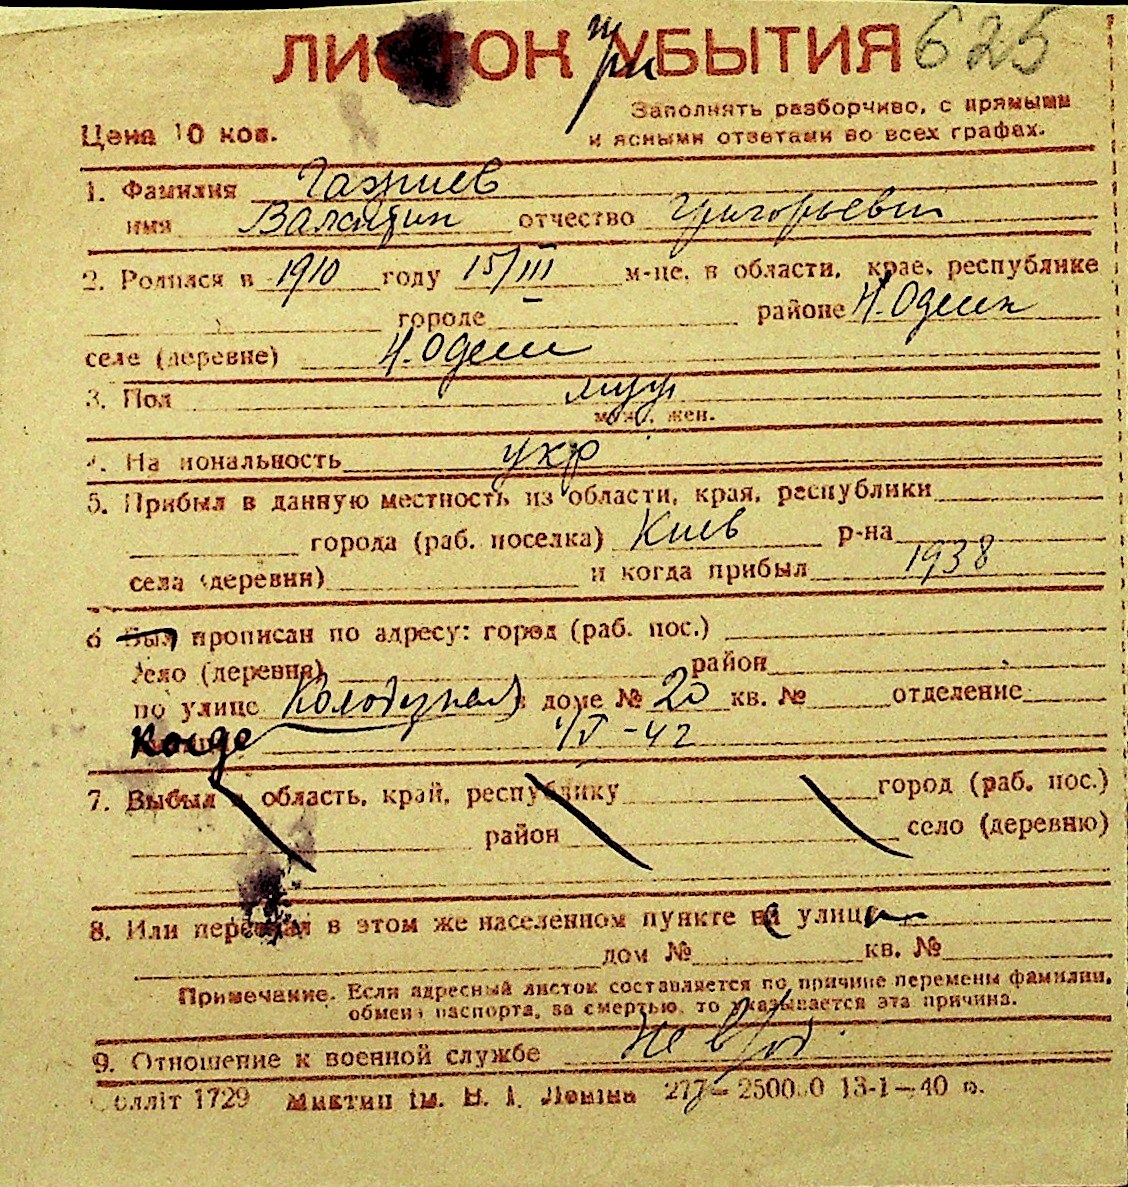 ЛИСТОК при УБЫТИЯ 625
Заполнять разборчиво, с прямыми
и ясными ответами во всех графах.
Цена 10 коп.
1. Фамилия
имя Валентин отчество Григорьевич
2. Родился в 1910 году 15/III м-це, в области, крае, республике
городе районе Н.Одесск
селе (деревне) Н.Одесс
3. Пол муж
муж., жен.
4. Национальность укр
5. Прибыл в данную местность из области, края, республики
города (раб. поселка) Киев р-на
села (деревни) и когда прибыл 1938
6 Был прописан по адресу: город (раб. пос.)
село (деревня) район
по улице Колодезная в доме № 20 кв. № отделение
Когда -42
7. Выбыл в область, край, республику город (раб. пос.)
район село (деревню)
8. Или переехал в этом же населенном пункте на улицу
дом № кв. №
Примечание. Если адресный листок составляется по причине перемены фамилии,
обмена паспорта, за смертью, то указывается эта причина.
9. Отношение к военной службе
Облліт 1729 Миктип ім. В. І. Леніна 277 — 250000 13-1—40 р.